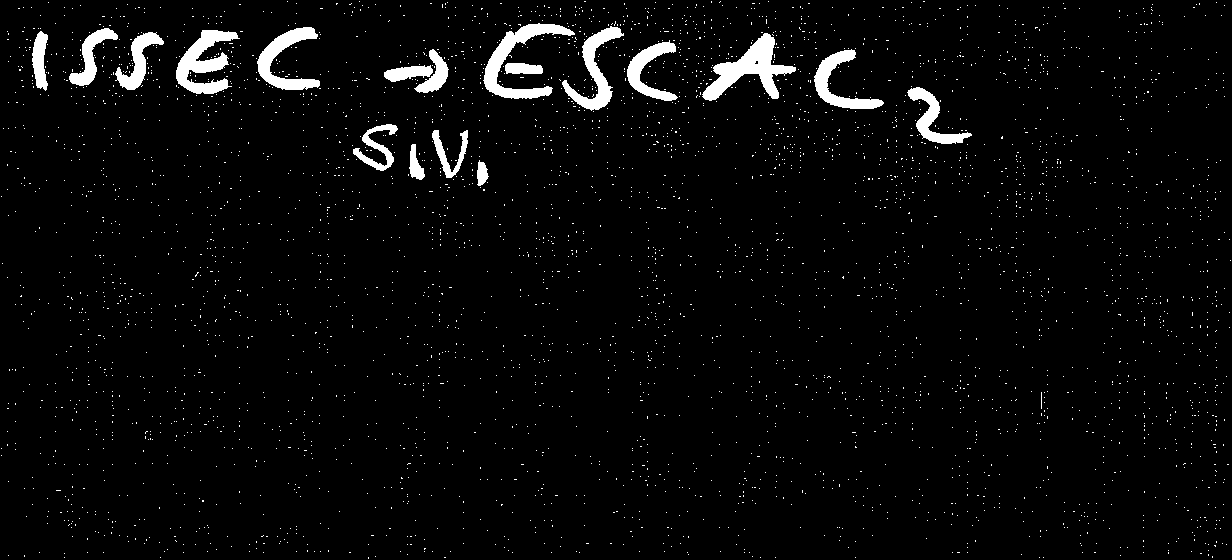 ISSEC → ESCAC2
S.V.